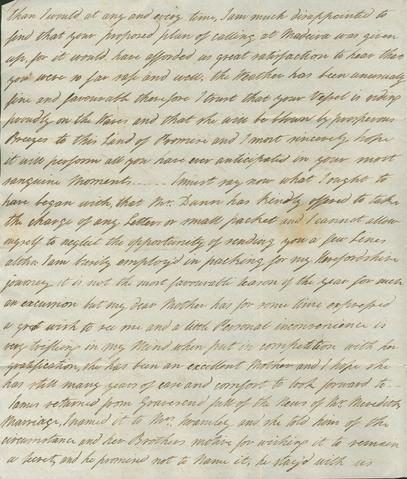 than I would at any and every time, I am much disappointed to
find that your proposed plan of calling at Madeira was given
up, for it would have afforded us great satisfaction to hear that
you were so far safe and well, the Weather has been unusually
fine and favourable therefore I trust that your Vessel is riding
proudly on the Waves and that she will be blown by prosperous
Breezes to this Land of Promise and I most sincerely hope
it will perform all you have ever anticipated in your most
sanguine Moments...... I must say now what I ought to
have began with, that Mrs. Dunn has kindly offered to take
the charge of any Letters or small packet and I cannot allow
myself to neglect the opportunity of sending you a few Lines
altho. I am busily employ'd in packing for my Herefordshire
journey it is not the most favourable Season of the year for such
an excursion but my dear Mother has for some time expressed
a great wish to see me and a little Personal inconvenience is
very trifling in my Mind when put in competition with her
gratification, she has been an excellent Mother and I hope she
has still many years of ease and comfort to look forward to
James returned from Gravesend full of the News of Mr. Meredith's
Marriage, I named it to Mrs. and she told him of the
circumstance and her Brothers motive for wishing it to remain
a secret and he promised not to name it, he stay'd with us